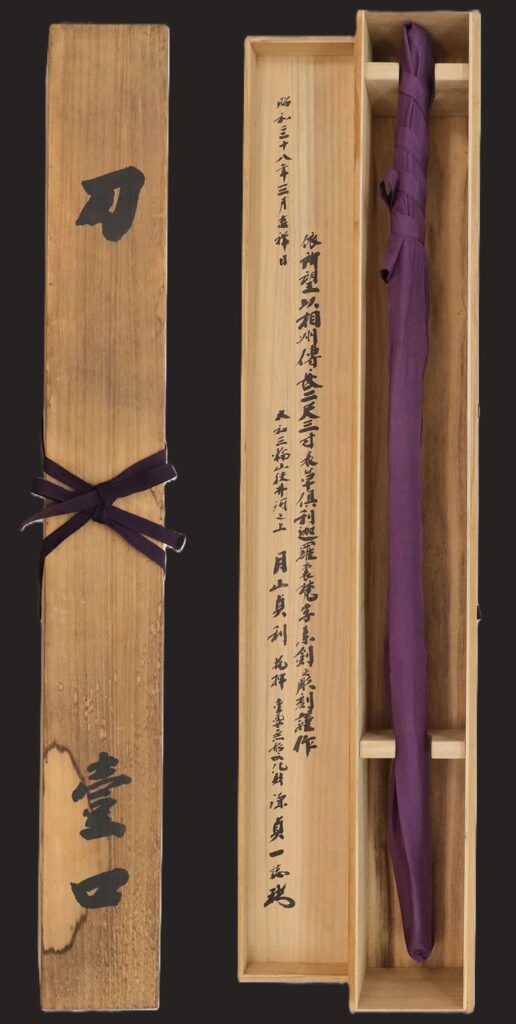 刀 壹口
依所望以相州傳長二尺三寸表草倶利迦羅裏梵字素剣彫刻謹作
昭和十八年三月吉祥日
大和三輪山狭井河之上 月山貞利 花押 重要無形文化財 源貞一誌